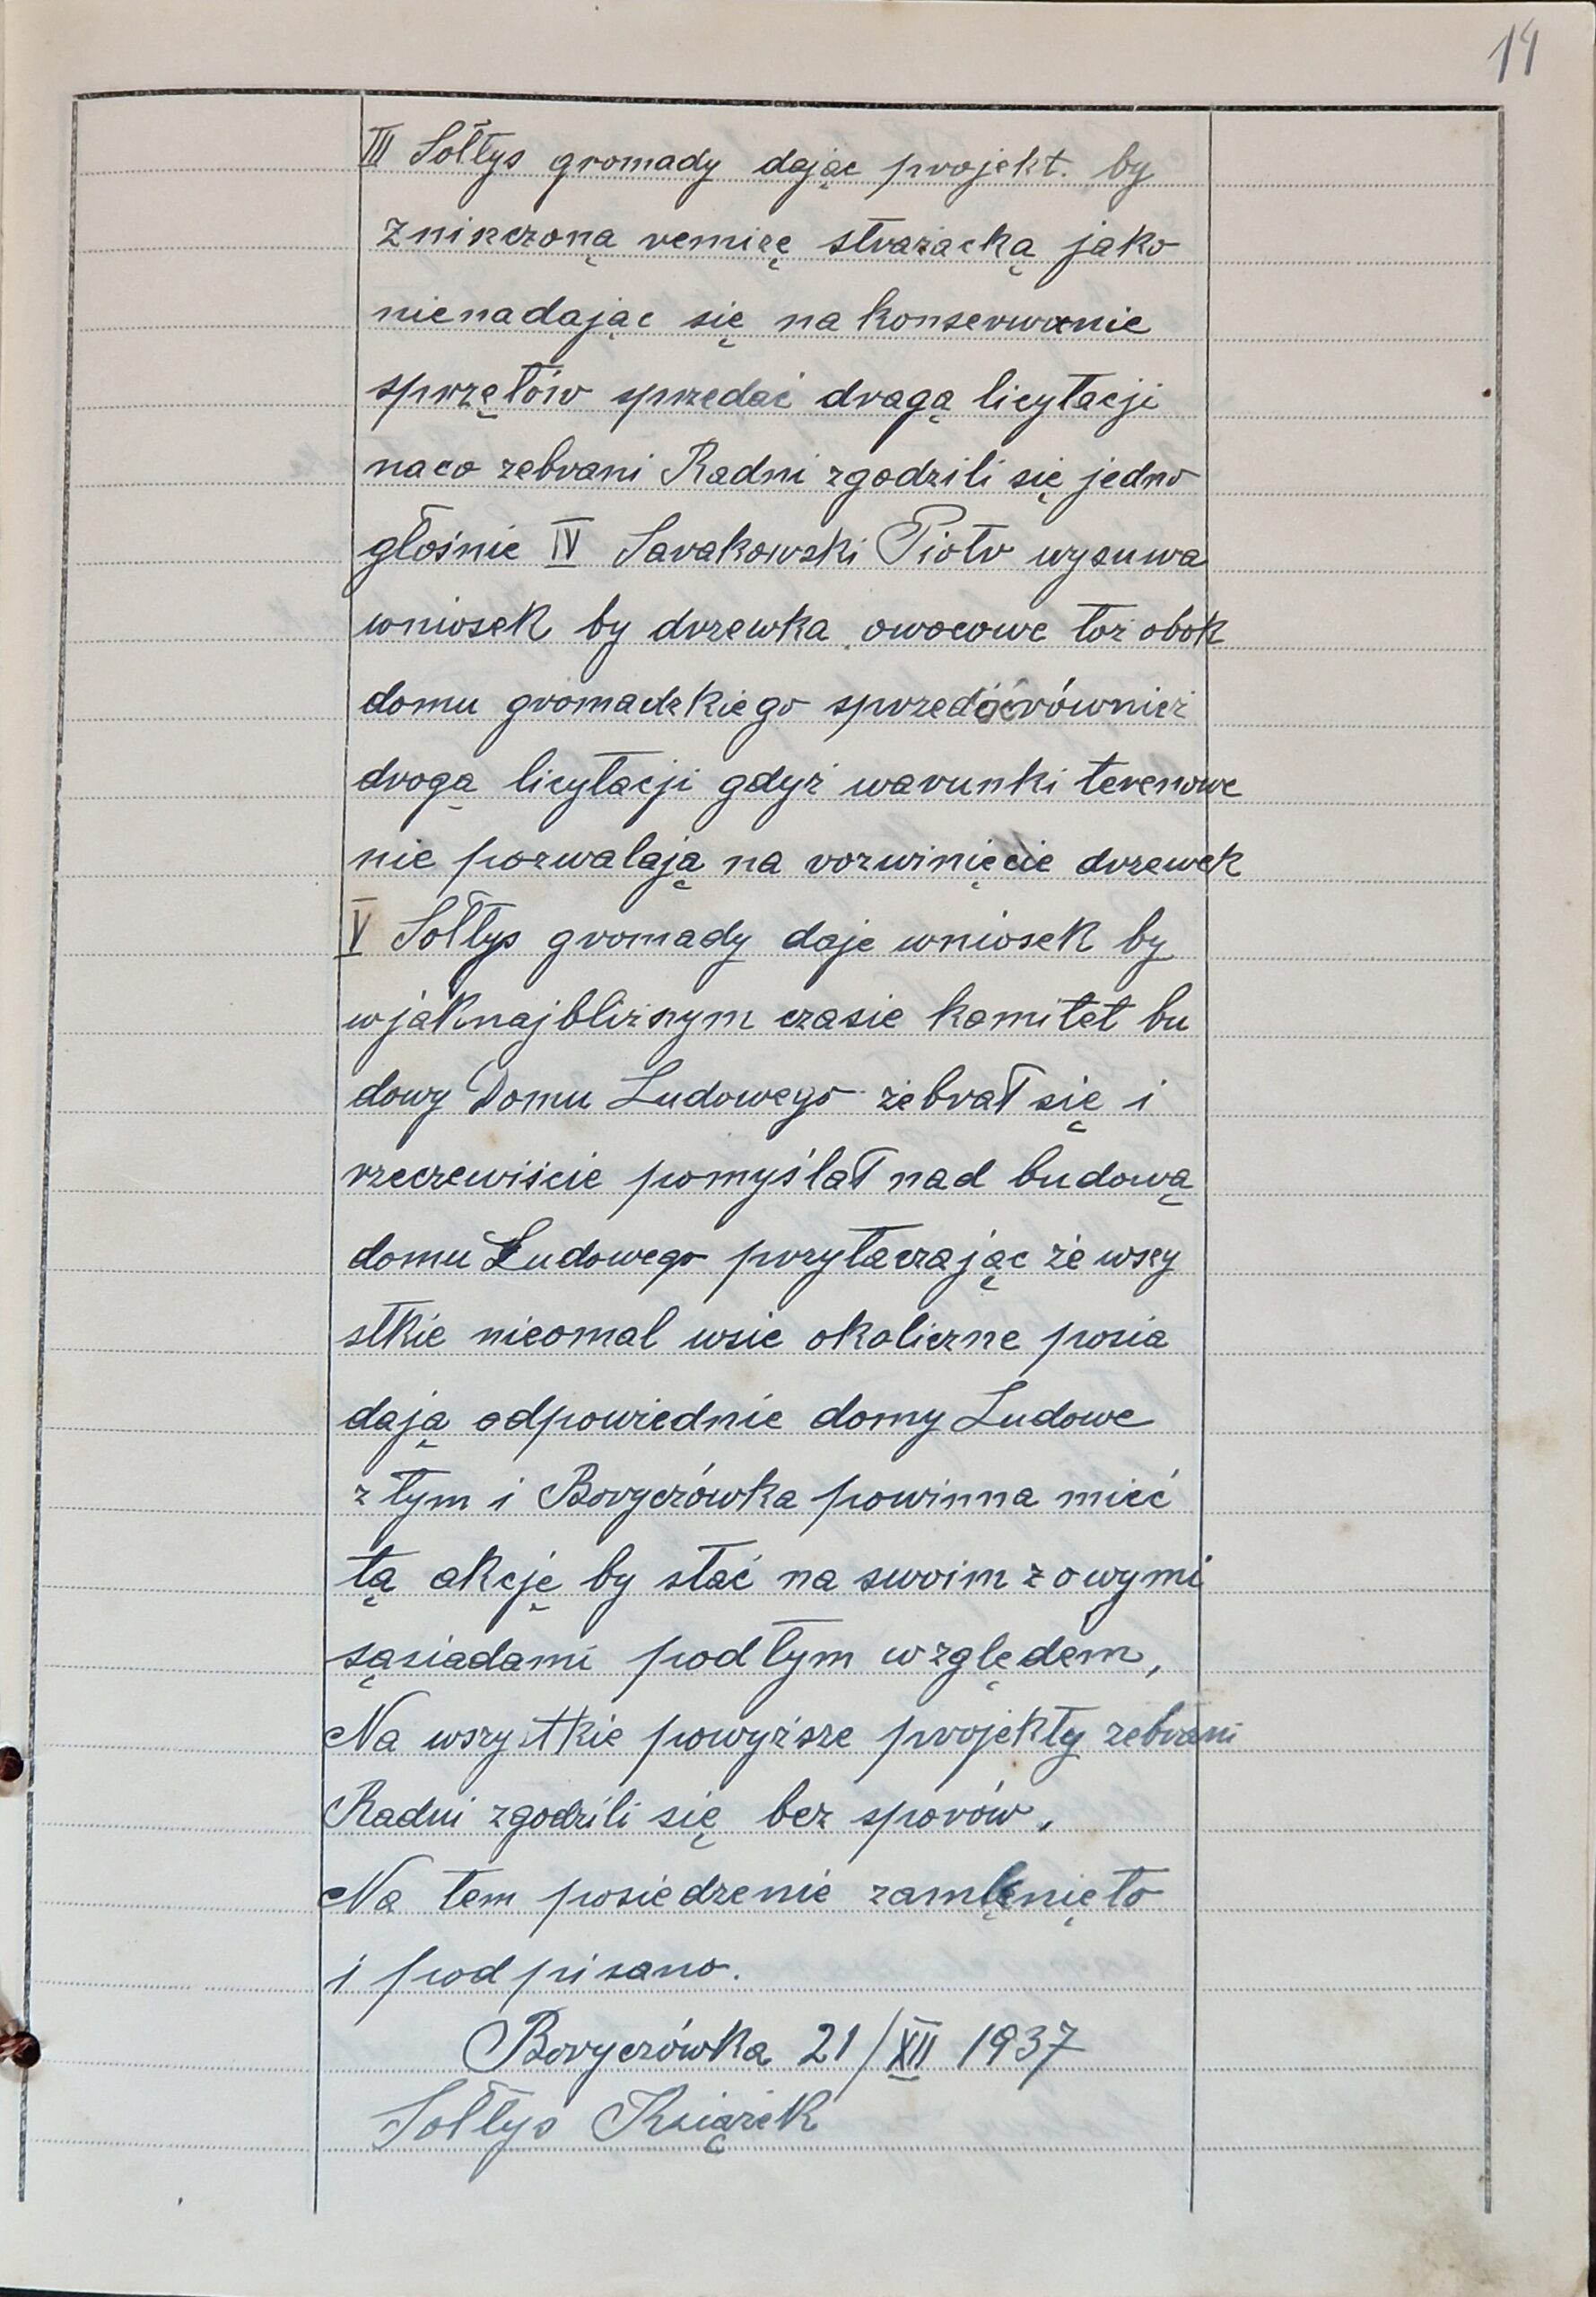 14
III Sołtys gromady dając projekt. by
zniszczoną remizę strażacką jako
nienadając się na konserwanie
sprzętów sprzedać dragą licytacji
naco zebrani Radni zgodzili się jedno
głośnie IV Sarakowski Piotr wysuwa
wniosek by drzewka owocowe toż obok
domu gromadzkiego sprzedać również
drogą licytacji gdyż warunki terenowe
nie pozwalają na rozwinięcie drzewek
V Sołtys gromady daje wniosek by
wjaknajbliższym czasie komitet bu
dowy Domu Ludowego zebrał się i
rzeczewiście pomyślał nad budową
domu Ludowego przytaczając że wszy
stkie nieomal wsie okoliczne posia
dają odpowiednie domy Ludowe
z tym i Boryczówka powinna mieć
tą akcję by stać na swoim z owymi
sąsiadami pod tym względem,
Na wszystkie powyższe projekty zebrani
Radni zgodzili się bez sporów.
Na tem posiedzenie zamknięto
i podpisano.
Boryczówka 21/XII 1937
Sołtys Książek